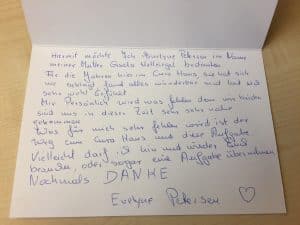 Hiermit möchte Ich Evelyne Petersen im Namen
meiner Mutter Gisela bedanken
Für die Jahren hier im Cura Haus, sie hat sich
nie beklagt fand alles wunderbar und hat sich
sehr wohl Gefühlt
Mir Persönlich wird was fehlen denn wir
sind uns in dieser Zeit sehr sehr nahe
gekommen
Was für mich sehr fehlen wird ist der
Weg zum Cura Haus und diese Aufgabe
Vielleicht darf ich hin und wieder Euch
besuchen, oder sogar eine Aufgabe übernehmen
Nochmals DANKE
Evelyne Petersen